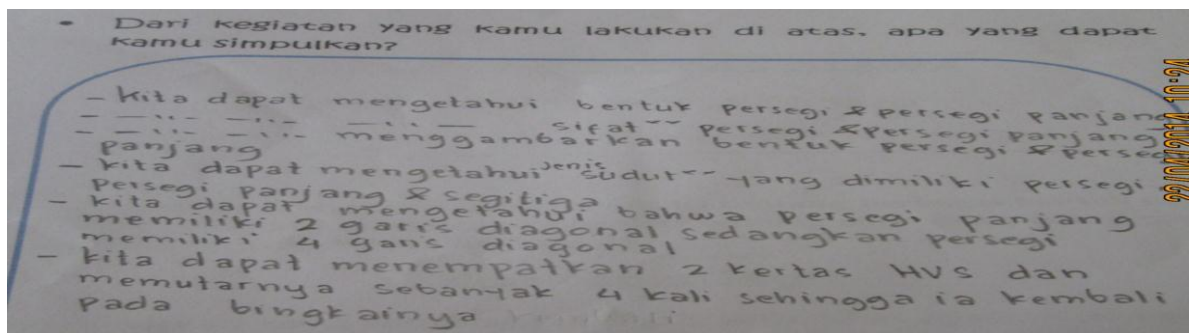 • Dari kegiatan yang kamu lakukan di atas, apa yang dapat
kamu simpulkan?
- Kita dapat mengetahui bentuk persegi & persegi panjang
- — " — — " — — " — sifat ~~ persegi & persegi panjang
- — " — — " — menggambarkan bentuk persegi & persegi
panjang
- kita dapat mengetahui jenis sudut ~~ yang dimiliki persegi
persegi panjang & segitiga
- kita dapat mengetahui bahwa persegi panjang
memiliki 2 garis diagonal sedangkan persegi
memiliki 4 garis diagonal
- kita dapat menempatkan 2 kertas HVS dan
memutarnya sebanyak 4 kali sehingga ia kembali
pada bingkainya
22/04/2014 10:24